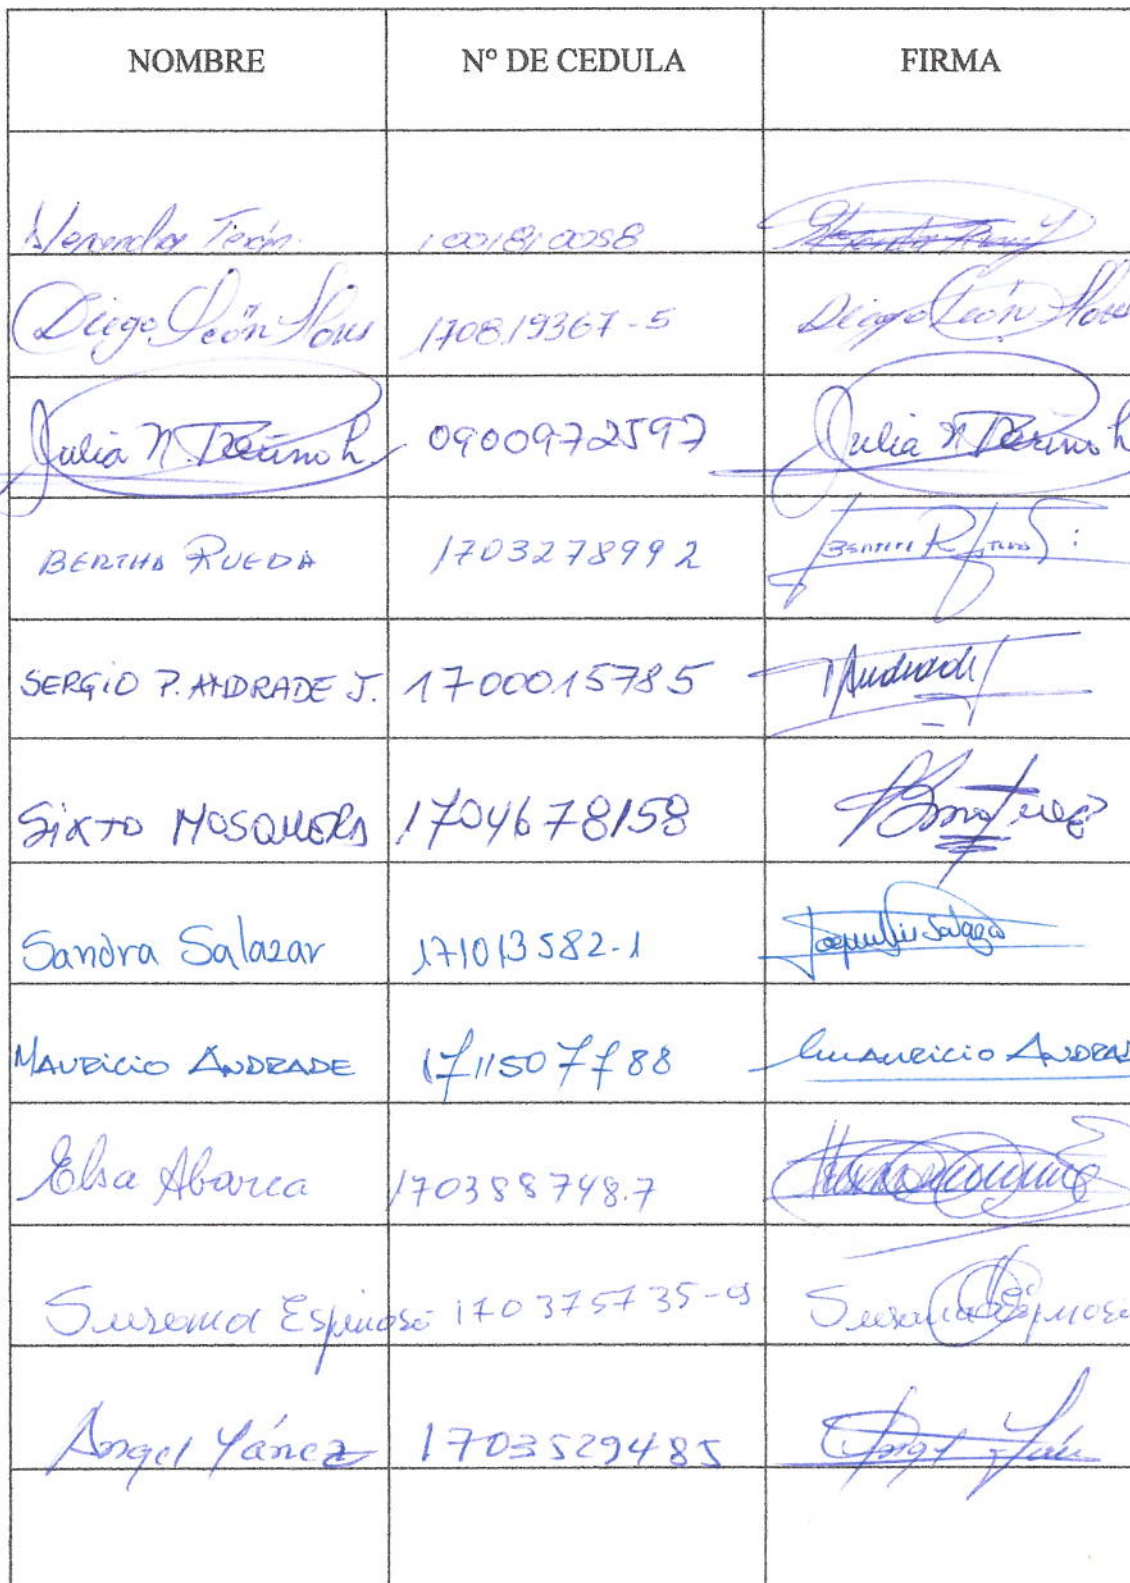 NOMBRE Nº DE CEDULA FIRMA
Terán. 1001810058
Diego León Flores 170819367-5 Diego León Flores
Julia N. 0900972597 Julia N
BERTHA RUEDA 1703278992
SERGIO P. ANDRADE J. 1700015785 Andrade
SIXTO MOSQUERA 1704678158
Sandra Salazar 171013582-1 Salazar
MAURICIO ANDRADE 1711507788 MAURICIO ANDRADE
Elsa Abarca 170388748.7
Susana Espinosa 170375735-9 Susana Espinosa
Angel Yánez 1703529485 Angel Yánez